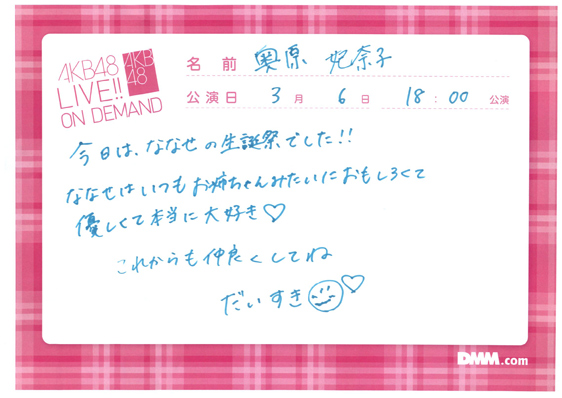 AKB48
LIVE!!
ON DEMAND
AKB
48
名前 奥原 妃奈子
公演日 3月 6日 18:00 公演
今日は、ななせの生誕祭でした!!
ななせはいつもお姉ちゃんみたいにおもしろくて
優しくて本当に大好き♡
これからも仲良くしてね
だいすき♡
DMM.com